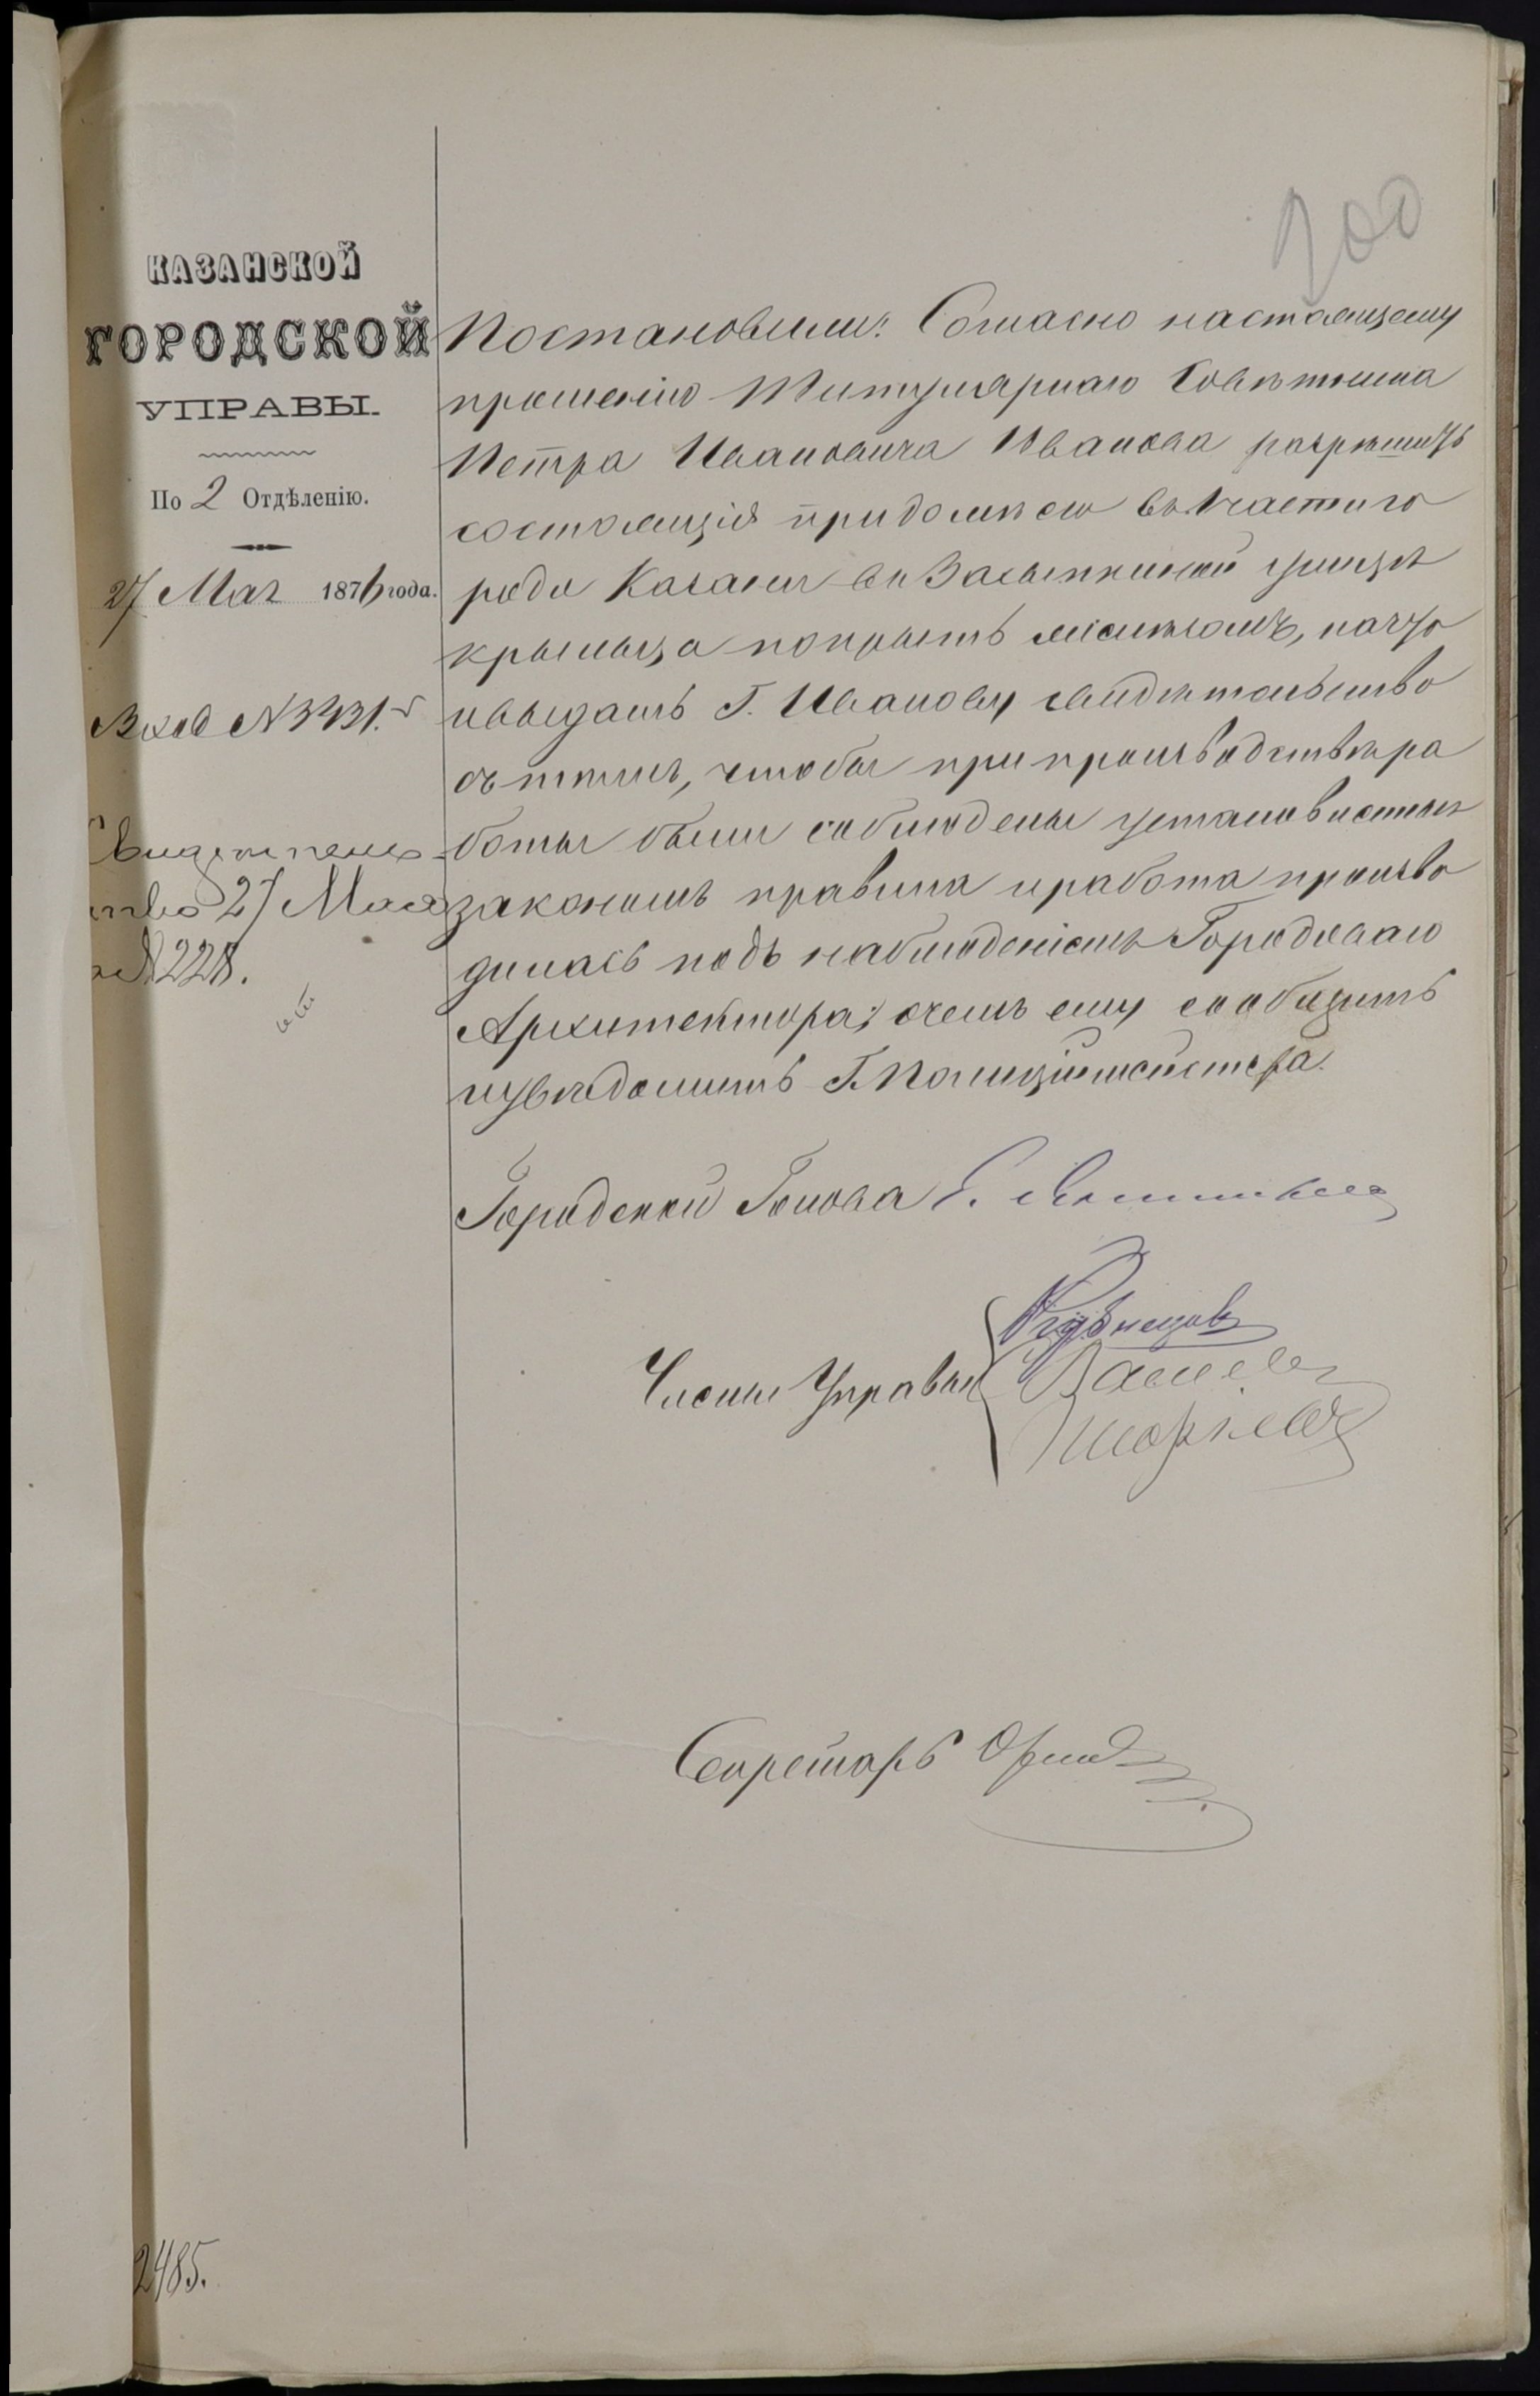 100
КАЗАНСКОЙ
ГОРОДСКОЙ
УПРАВЫ.
По 2 Отдѣленію.
27 Мая 1876 года.
Вход № 3431.
Свидѣтель
ство 27 Мая
№ 228.
Постановили: Согласно настоящему
прошенію Титулярнаго Совѣтника
Петра Ивановича Иванова разрѣшить
состоящія при домѣ его въ 1 части го
рода Казани въ Засыпкиной улицѣ
крыльца покрыть желѣзомъ, на что
и выдать Г. Иванову свидѣтельство
съ тѣмъ, чтобы при производствѣ ра
боты были соблюдены установленныя
закономъ правила и работа произво
дилась подъ наблюденіемъ Городоваго
Архитектора; о чемъ ему сообщить
и увѣдомить Г. Полиціймейстера.
Городской Голова
Члены Управы
Кузнецовъ
Секретарь
2485.